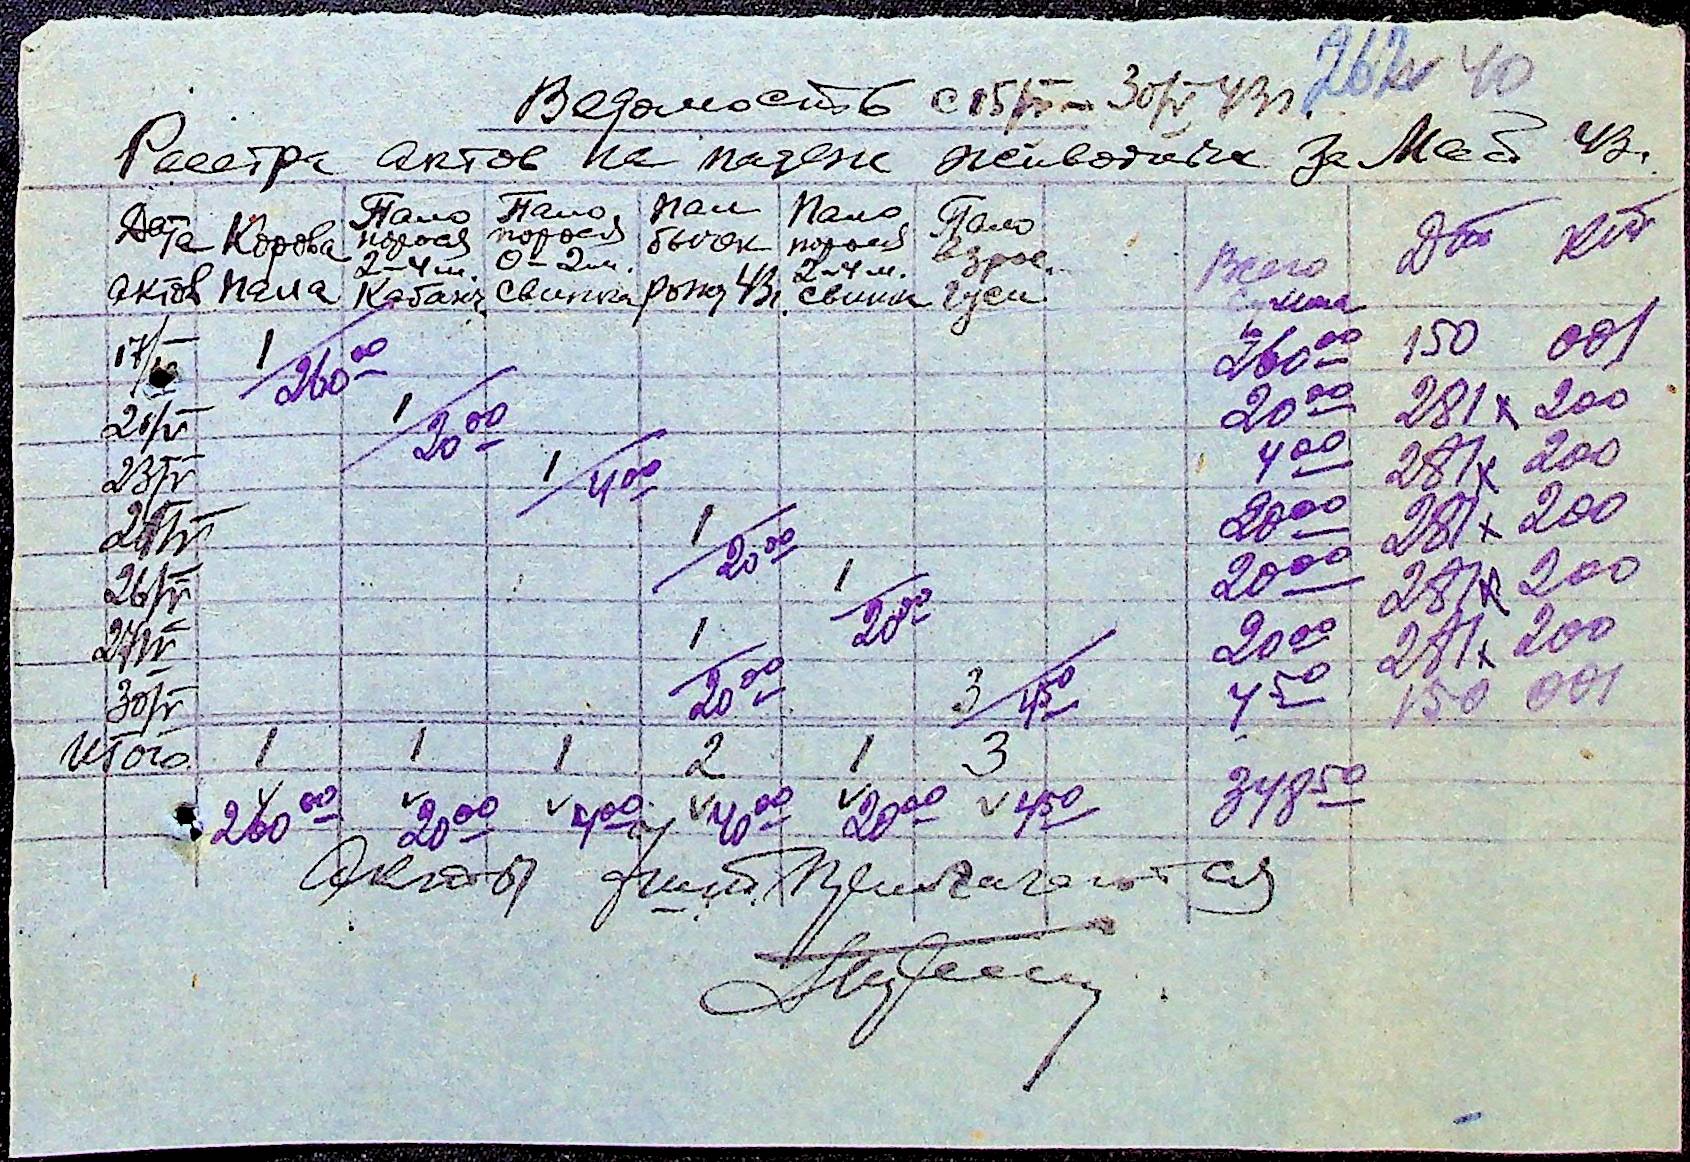 262 40
Ведомость с 15/V – 30/V 43 г.
Реестра актов на падеж животных за Май 43 г.
Дата актов | Корова пала | Пало порося 2-4 м. Кабанч | Пало порося 0-2 м. свинка | Пал бычек рожд 43 г. | Пало порося 2-4 м. свинк | Пало взрос. гуси | Всего сумма | Дт | Кт
17/V 1/260 00 260 00 150 001
21/V 1/20 00 20 00 281 х 200
23/V 1/4 00 4 00 281 х 200
1/20 00 20 00 281 х 200
26/V 1/20 00 20 00 281 х 200
27/V 1/20 00 20 00 281 х 200
30/V 3/4 50 4 50 150 001
Итого 1 1 1 2 1 3
260 00 20 00 4 00 40 00 20 00 4 50 348 50
Акты прилагаются